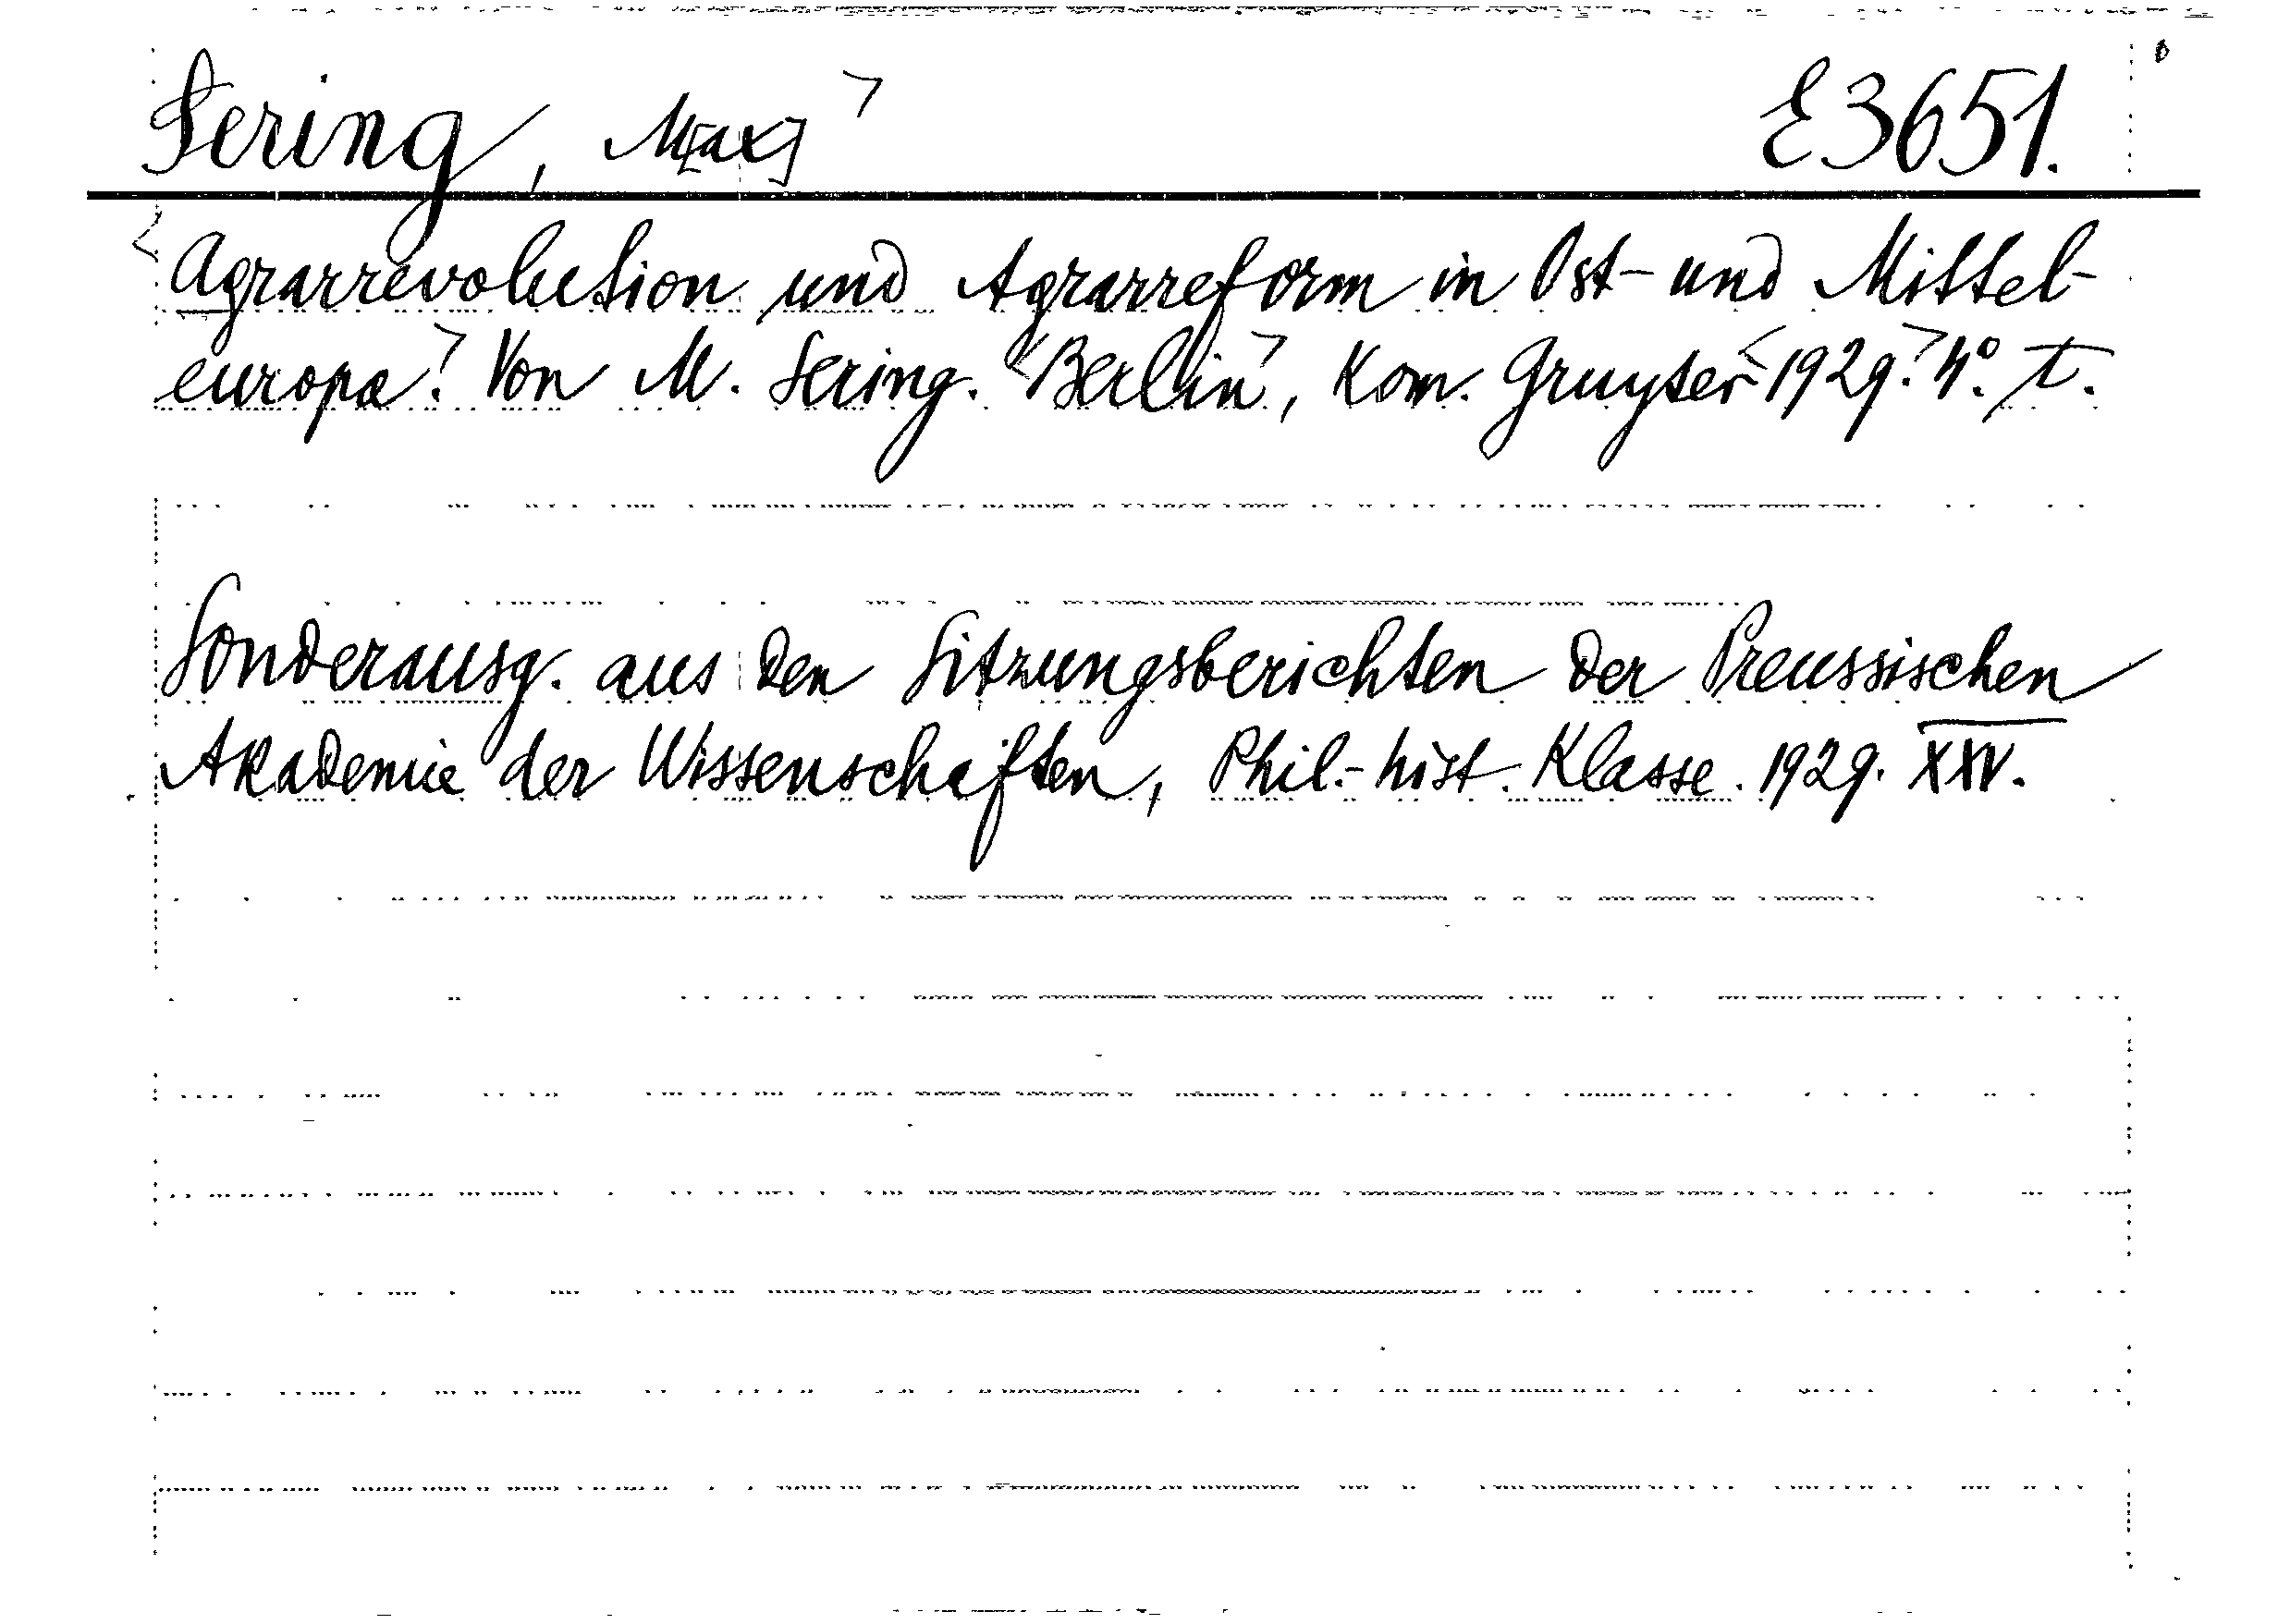 Sering, M[ax] E3651.
Agrarrevolution und Agrarreform in Ost- und Mittel-
europa. Von M. Sering. Berlin, Kom. Gruyter 1929. 4°. T.
Sonderausg. aus den Sitzungsberichten der Preussischen
Akademie der Wissenschaften, Phil.-hist. Klasse. 1929. XXV.